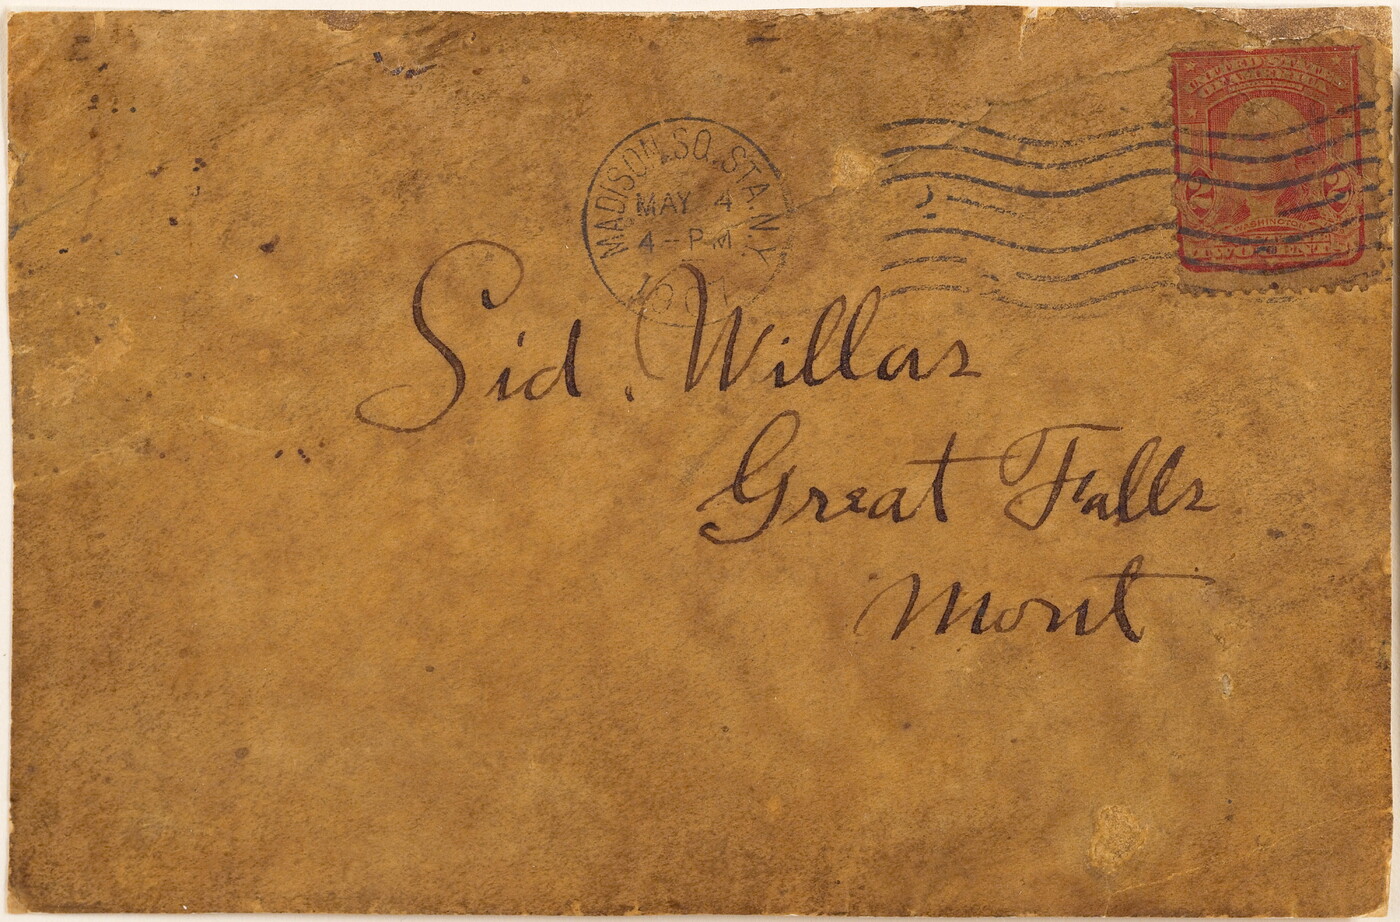 UNITED STATES
OF AMERICA
2 2
WASHINGTON
TWO CENTS
MADISON SQ. STA. N.Y.
MAY 4
4-PM
1907
Sid. Willas
Great Falls
Mont